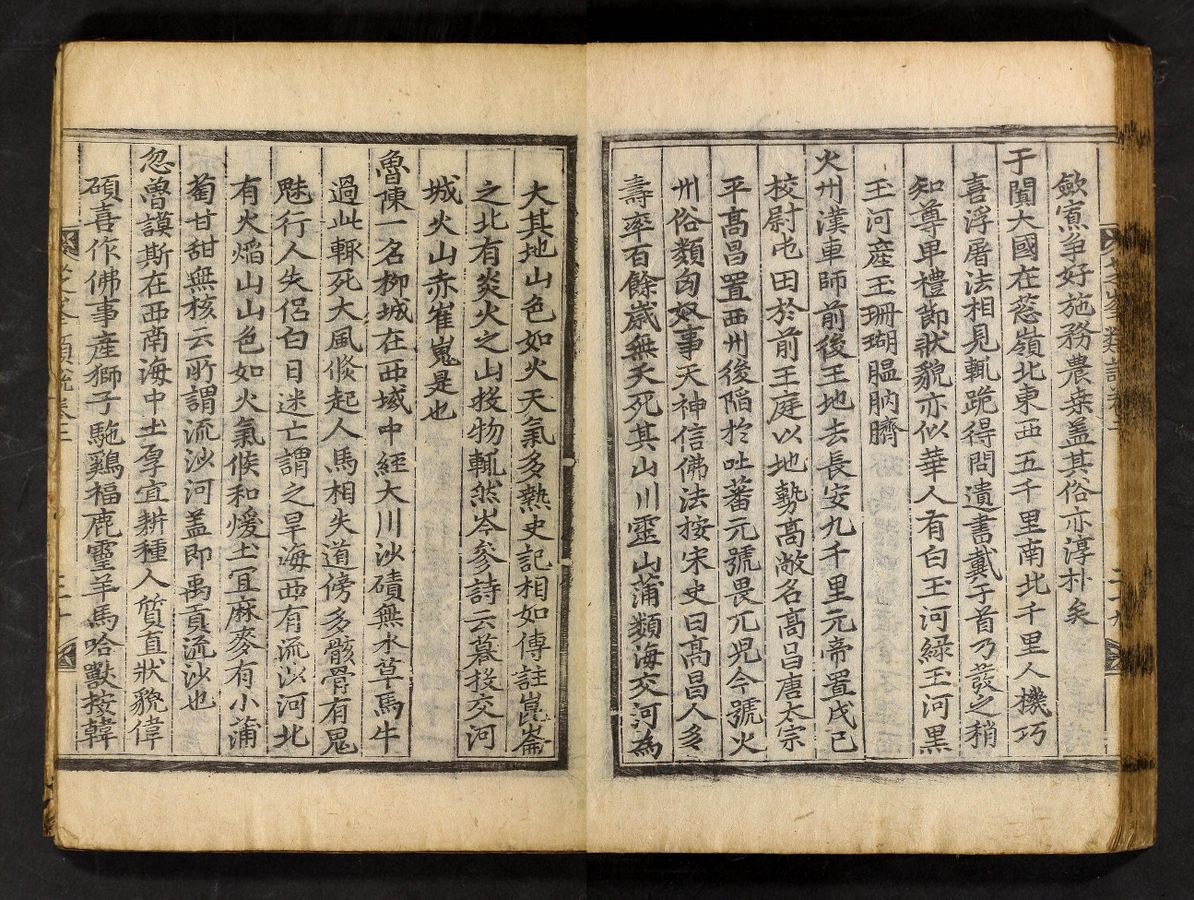 斂寡爭好施務農桒盖其俗亦淳朴矣
于闐大國在葱嶺北東西五千里南北千里人機巧
喜浮屠法相見輒跪得問遺書戴于首乃發之稍
知尊卑禮節狀貌亦似華人有白玉河綠玉河黑
玉河産玉珊瑚膃肭臍
火州漢車師前後王地去長安九千里元帝置戊已
校尉屯田於前王庭以地勢高敞名高昌唐太宗
平高昌置西州後陷於吐蕃元號畏兀児今號火
州俗類匈奴事天神信佛法按宋史曰高昌人多
壽率百餘歲無夭死其山川靈山蒲類海交河為
大其地山色如火天氣多熱史記相如傳註崑崙
之北有炎火之山投物輒然岑參詩云暮投交河
城火山赤崔嵬是也
魯陳一名柳城在西域中經大川沙磧無水草馬牛
過此輒死大風倐起人馬相失道傍多骸骨有鬼
魅行人失侣白日迷亡謂之旱海西有流沙河北
有火焰山山色如火氣候和煖土宜麻麥有小蒲
萄甘甜無核云所謂流沙河盖即禹貢流沙也
忽魯謨斯在西南海中土厚宜耕種人質直狀貌偉
碩喜作佛事産獅子駞鷄福鹿靈羊馬哈獸按韓